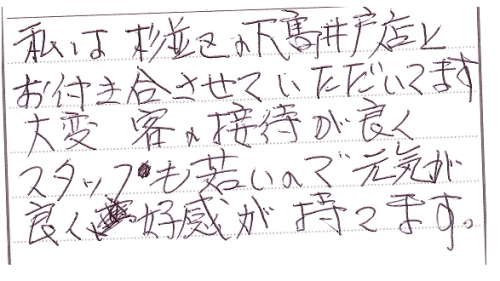 私は杉並区の下高井戸店と
お付き合させていただいてます
大変 客の接待が良く
スタッフも若いので元気が
良く好感が持てます。